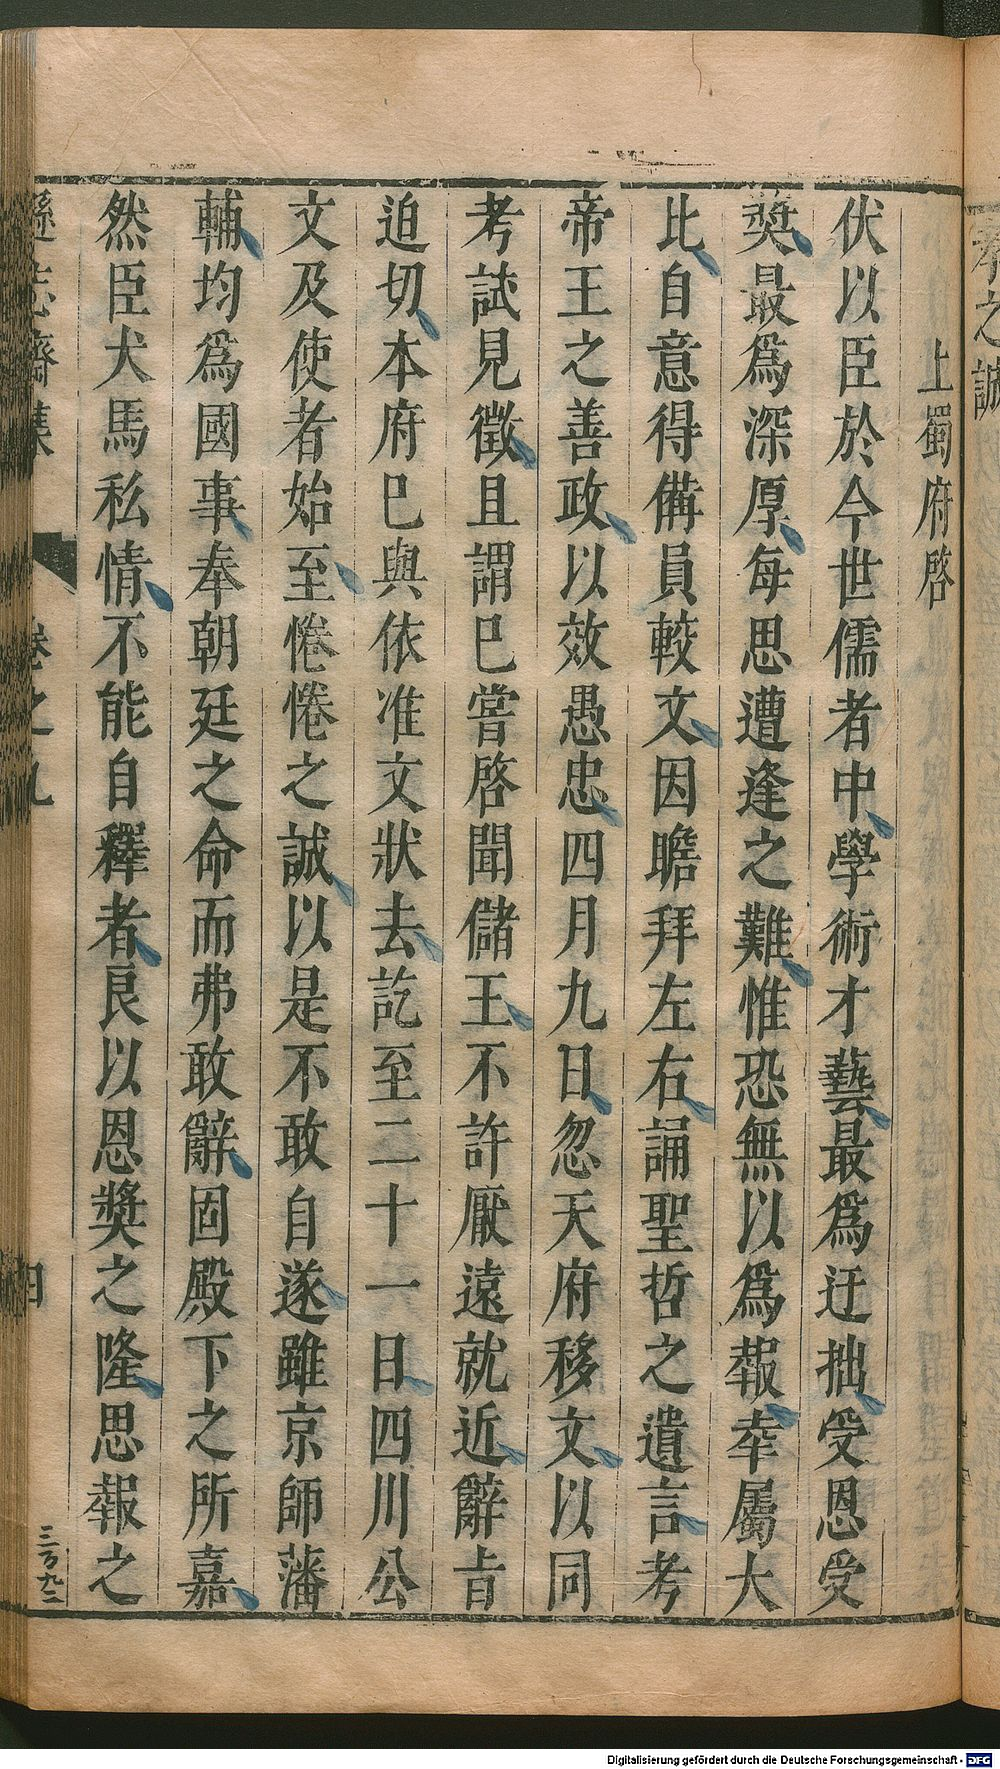 上蜀府啓
伏以臣於今世儒者中學術才藝最爲迂拙受恩受
奬最爲深厚每思遭逢之難惟恐無以爲報幸屬大
比自意得備員較文因瞻拜左右誦聖哲之遺言考
帝王之善政以效愚忠四月九日忽天府移文以同
考試見徵且謂巳嘗啓聞儲王不許厭遠就近辭旨
迫切本府巳與依准文狀去訖至二十一日四川公
文及使者始至惓惓之誠以是不敢自遂雖京師藩
輔均爲國事奉朝廷之命而弗敢辭固殿下之所嘉
然臣犬馬私情不能自釋者良以恩奬之隆思報之
遜志齋集 卷之九 四
三百九二
Digitalisierung gefördert durch die Deutsche Forschungsgemeinschaft - DFG